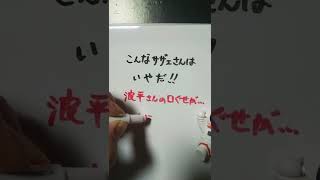 こんなサザエさんは
いやだ!!
波平さんの口ぐせが…